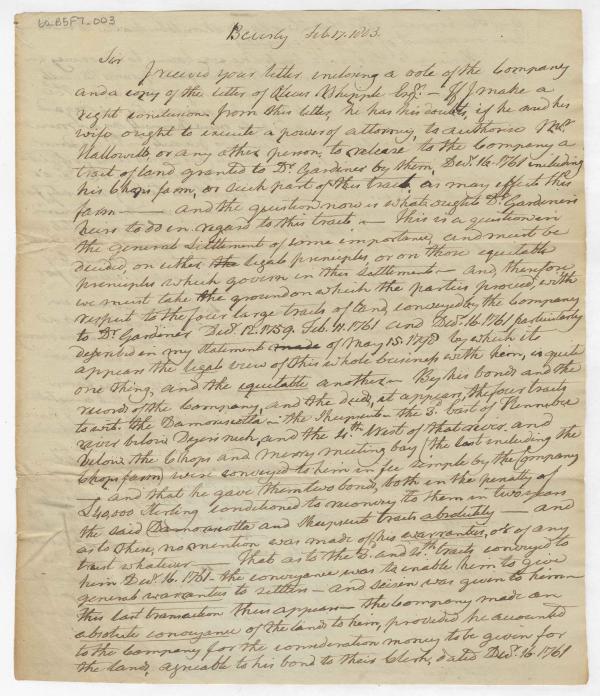 60.B5F7.003
Beverly Feb 17. 1803.
Sir
I received your letter inclosing a vote of the Company
and a copy of the letter of Oliver Whipple Esqr. — If I make a
right conclusion from this letter, he has his doubts, if he and his
wife ought to execute a power of attorney, to authorise Mr.
Hallowell, or any other person, to release to the Company a
tract of land granted to Dr. Gardiner by them, Decr. 16. 1761 including
his Chops farm, or such part of this tract as may effect this
farm — — and the question now is what ought Dr. Gardiners
heirs to do in regard to this tract. — This is a question in
the general settlement of some importance, and must be
decided, on either the legal principles, or on those equitable
principles which govern in this settlement — and, therefore
we must take the ground on which the parties proceed, with
respect to the four large tracts of land, conveyed by the Company
to Dr. Gardiner Decr. 12. 1759. Feb. 11. 1761 and Decr. 16. 1761 particularly
defined in my statement made of May 15. 1798 by which it
appears the legal view of this whole business with him, is quite
one thing, and the equitable another — By his bonds and the
records of the Company, and the deeds, it appears, the four tracts
to wit. the Damariscotta — the Sheepscot — the 3d. East of Kennebec
river below and the 4th. West of that river, and
below the Chops and merry meeting bay (the last including the
Chops farm) were conveyed to him in fee simple by the Company
— and that he gave them two bonds, both in the penalty of
£40,000 Sterling conditioned to reconvey to them in two years
the said Damariscotta and Sheepscot tracts absolutely — and
as to these, no mention was made of his warranties, or of any
trust whatever — That as to the 3. and 4th. tracts conveyed to
him Decr. 16. 1761 — the conveyance was to enable him to give
general warranties to settlers — and seisin was given to him —
this last transaction thus appears — the Company made an
absolute conveyance of the lands to him, provided he accounted
to the Company for the consideration money to be given for
the land, agreeable to his bond to their Clerk, dated Decr. 16. 1761